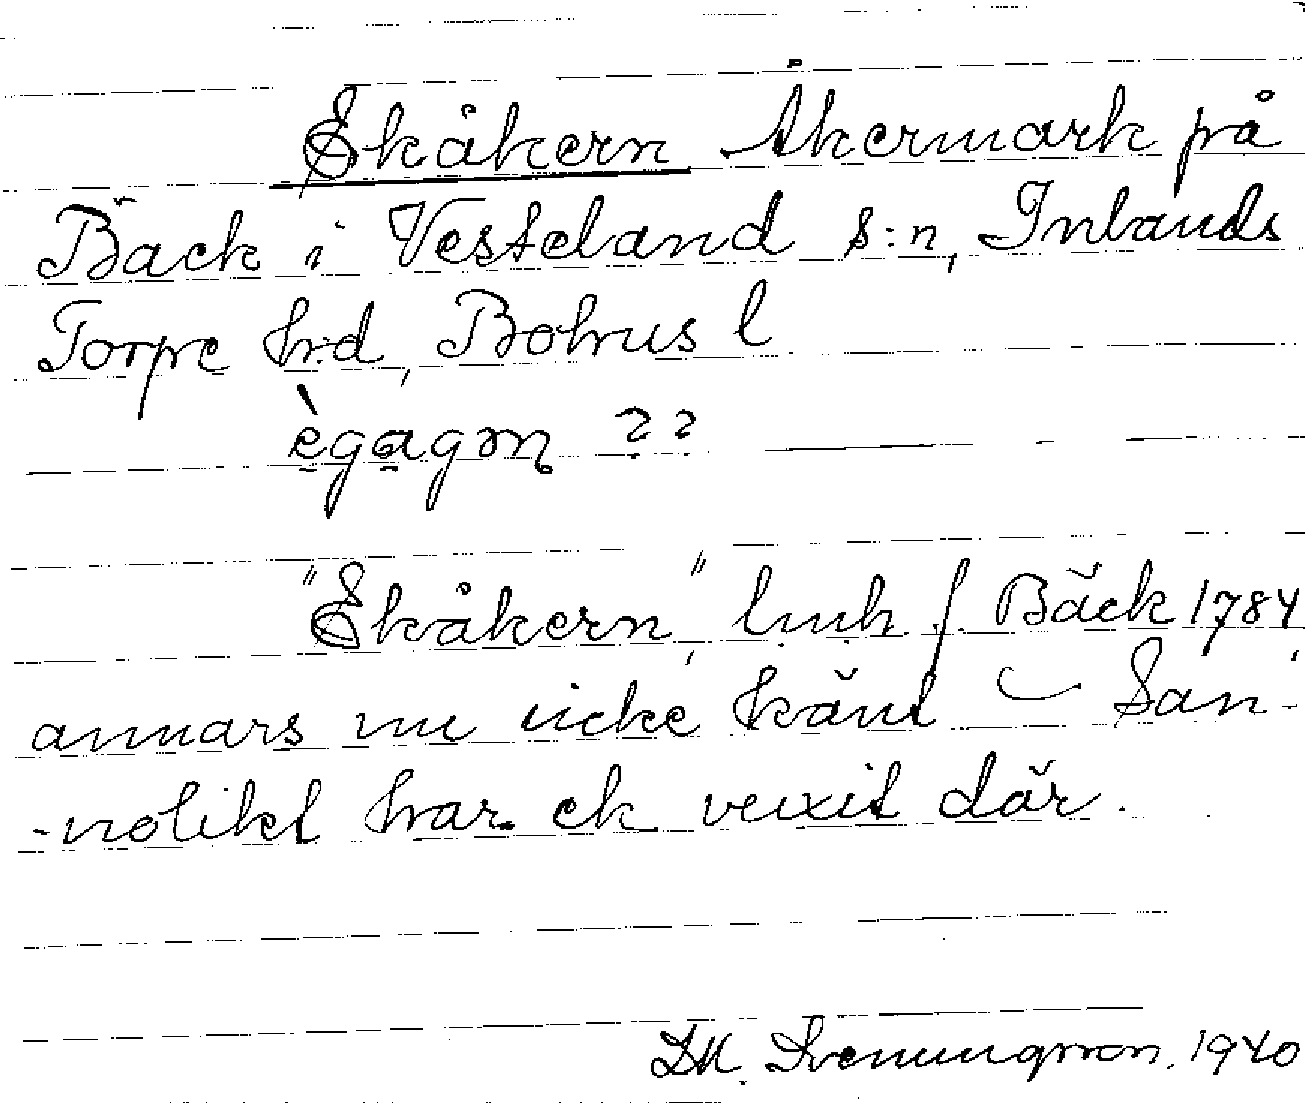 Ekåkern Åkermark på
Bäck i Vesteland s:n, Inlands
Torpe hrd, Bohus l
ègagɷn ??
"Ekåkern", lmh f Bäck 1784,
annars nu icke känt – San-
-nolikt har ek vuxit där.
Svenungsson. 1940